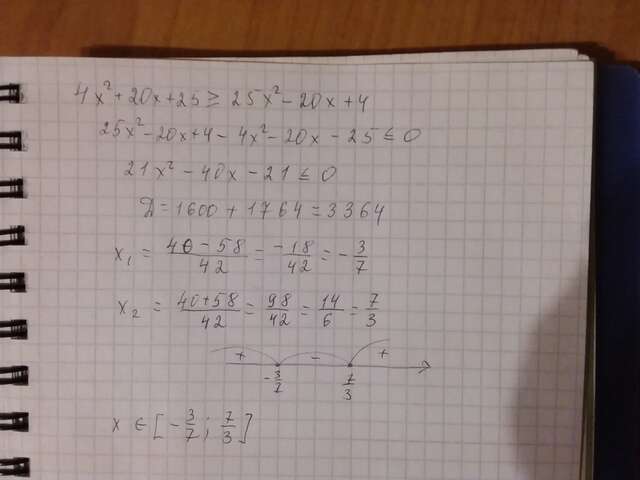 4x² + 20x + 25 ≥ 25x² - 20x + 4
25x² - 20x + 4 - 4x² - 20x - 25 ≤ 0
21x² - 40x - 21 ≤ 0
D = 1600 + 1764 = 3364
x₁ = (40 - 58)/42 = -18/42 = -3/7
x₂ = (40 + 58)/42 = 98/42 = 14/6 = 7/3
+ - +
-3/7 7/3
x ∈ [-3/7; 7/3]